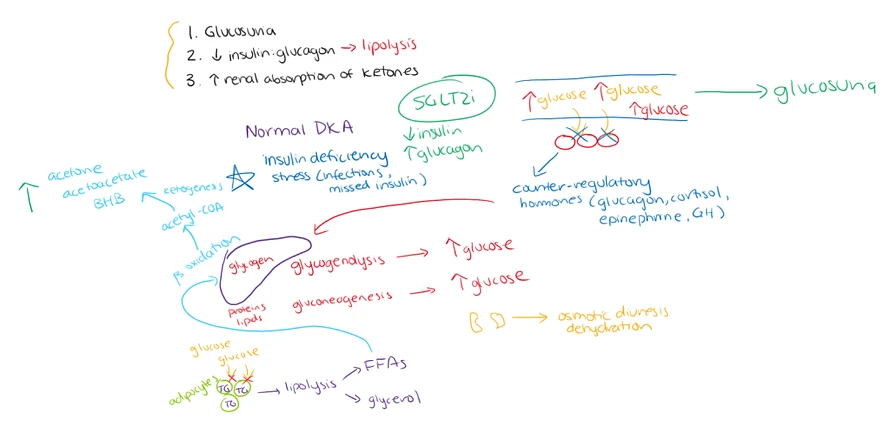 1. Glucosuria
2. ↓ insulin:glucagon → lipolysis
3. ↑ renal absorption of ketones
SGLT2i
↓ insulin
↑ glucagon
↑ glucose ↑ glucose
↑ glucose
→ glucosuria
Normal DKA
insulin deficiency
stress (infections,
missed insulin)
counter-regulatory
hormones (glucagon, cortisol,
epinephrine, GH)
↑ acetone
acetoacetate
BHB
ketogenesis
acetyl-COA
β oxidation
glycogen
glycogenolysis → ↑ glucose
proteins
lipids
gluconeogenesis → ↑ glucose
→ osmotic diuresis
dehydration
glucose
glucose
adipocytes
TG TG
TG
→ lipolysis
FFAs
glycerol